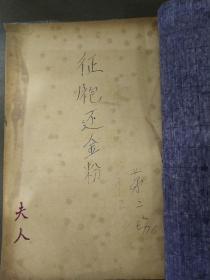 征袍还金粉
第二场
夫人